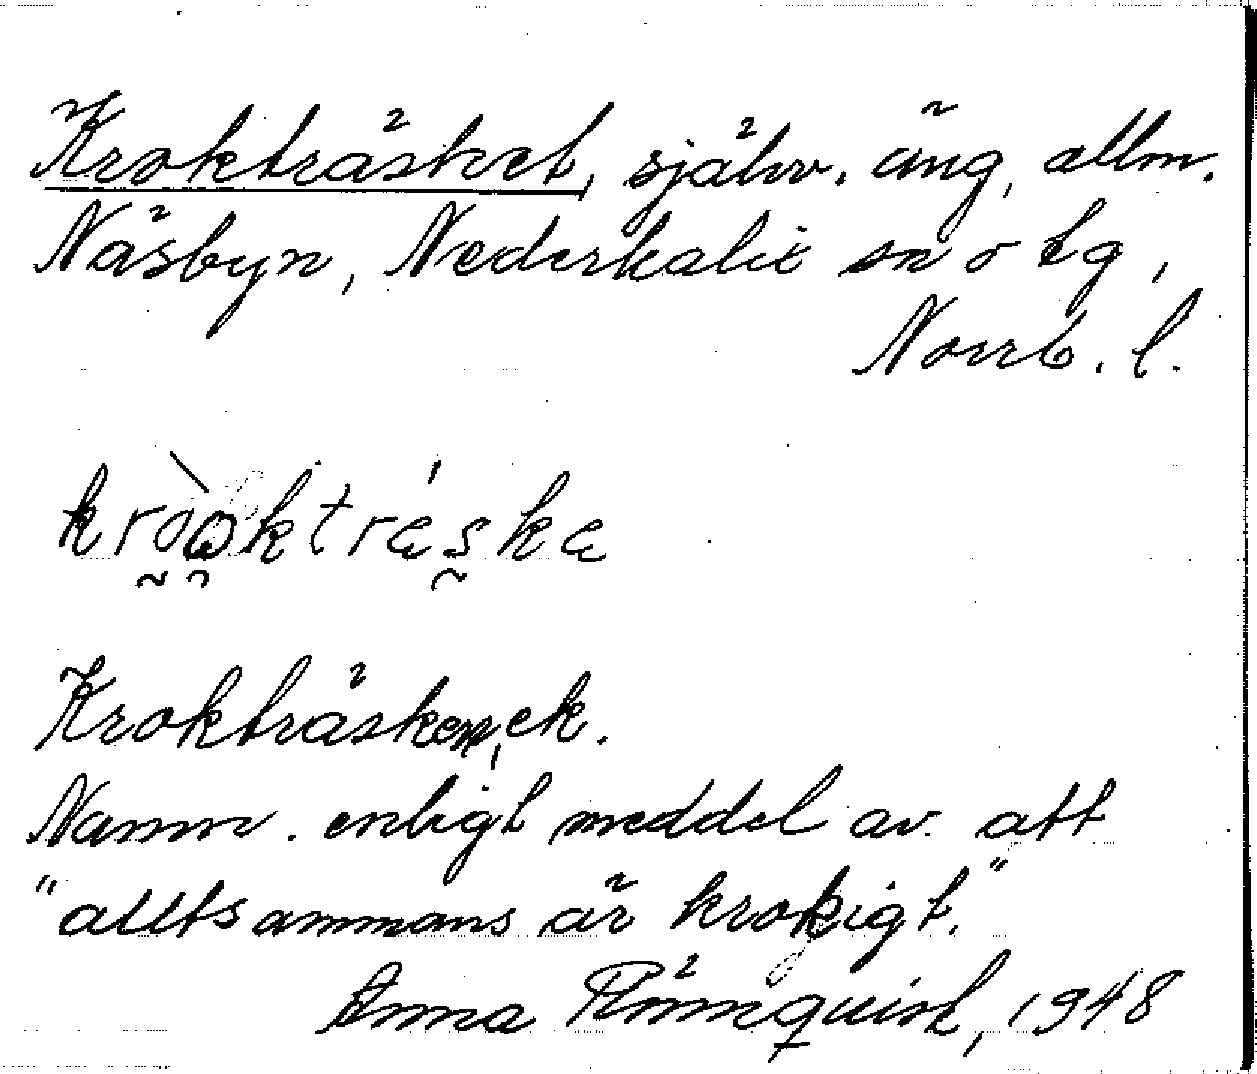 Krokträsket, självv. äng, allm.
Näsbyn, Nederkalix sn o tg,
Norrb. l.
kròoktrǽskæ
Krokträsken, ek.
Namn. enligt meddel av. att
"alltsammans är krokigt."
Anna Rönnquist, 1948